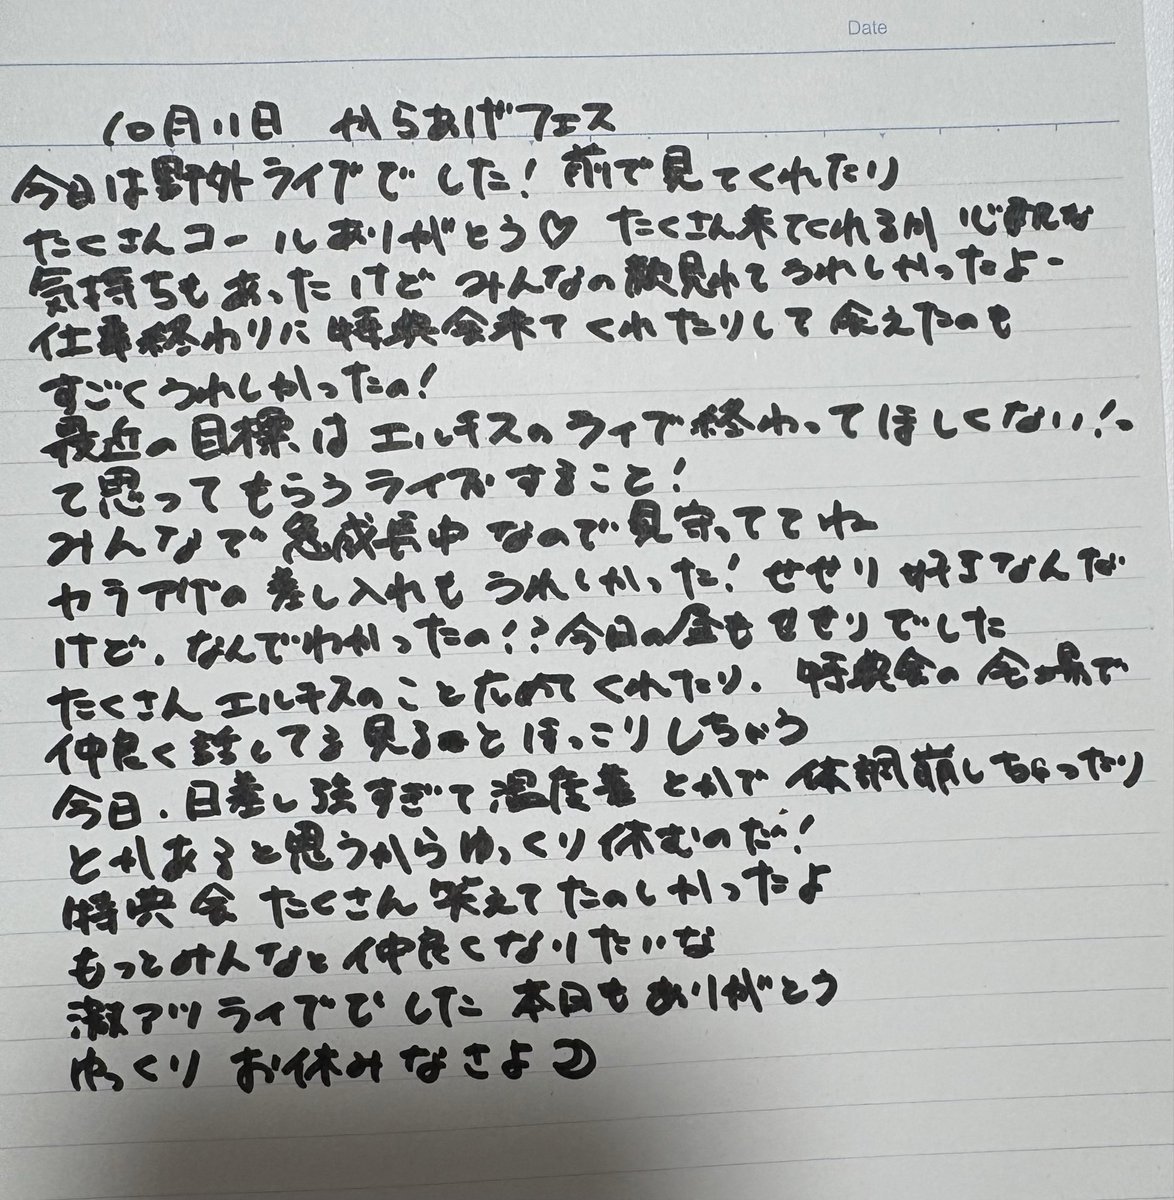 Date
10月11日 からあげフェス
今日は野外ライブでした!前で見てくれたり
たくさんコールありがとう♡ たくさん来てくれるか心配な
気持ちもあったけどみんなの歓見れてうれしかったよー
仕事終わりに特典会来てくれたりして会えたのも
すごくうれしかったの!
最近の目標はエルキスのライブ終わってほしくない!っ
て思ってもらうライブすること!
みんなで急成長中なので見守っててね
カラアゲの差し入れもうれしかった!せせり好きなんだ
けど、なんでわかったの!?今日の金もせせりでした
たくさんエルキスのこと広めてくれたり、特典会の会場で
仲良く話してる見るとほっこりしちゃう
今日、日差し強すぎて温度差とかで体調崩しちゃったり
とかあると思うからゆっくり休むのだ!
特典会たくさん笑えてたのしかったよ
もっとみんなと仲良くなりたいな
激アツライブでした 本日もありがとう
ゆっくりお休みなさよ